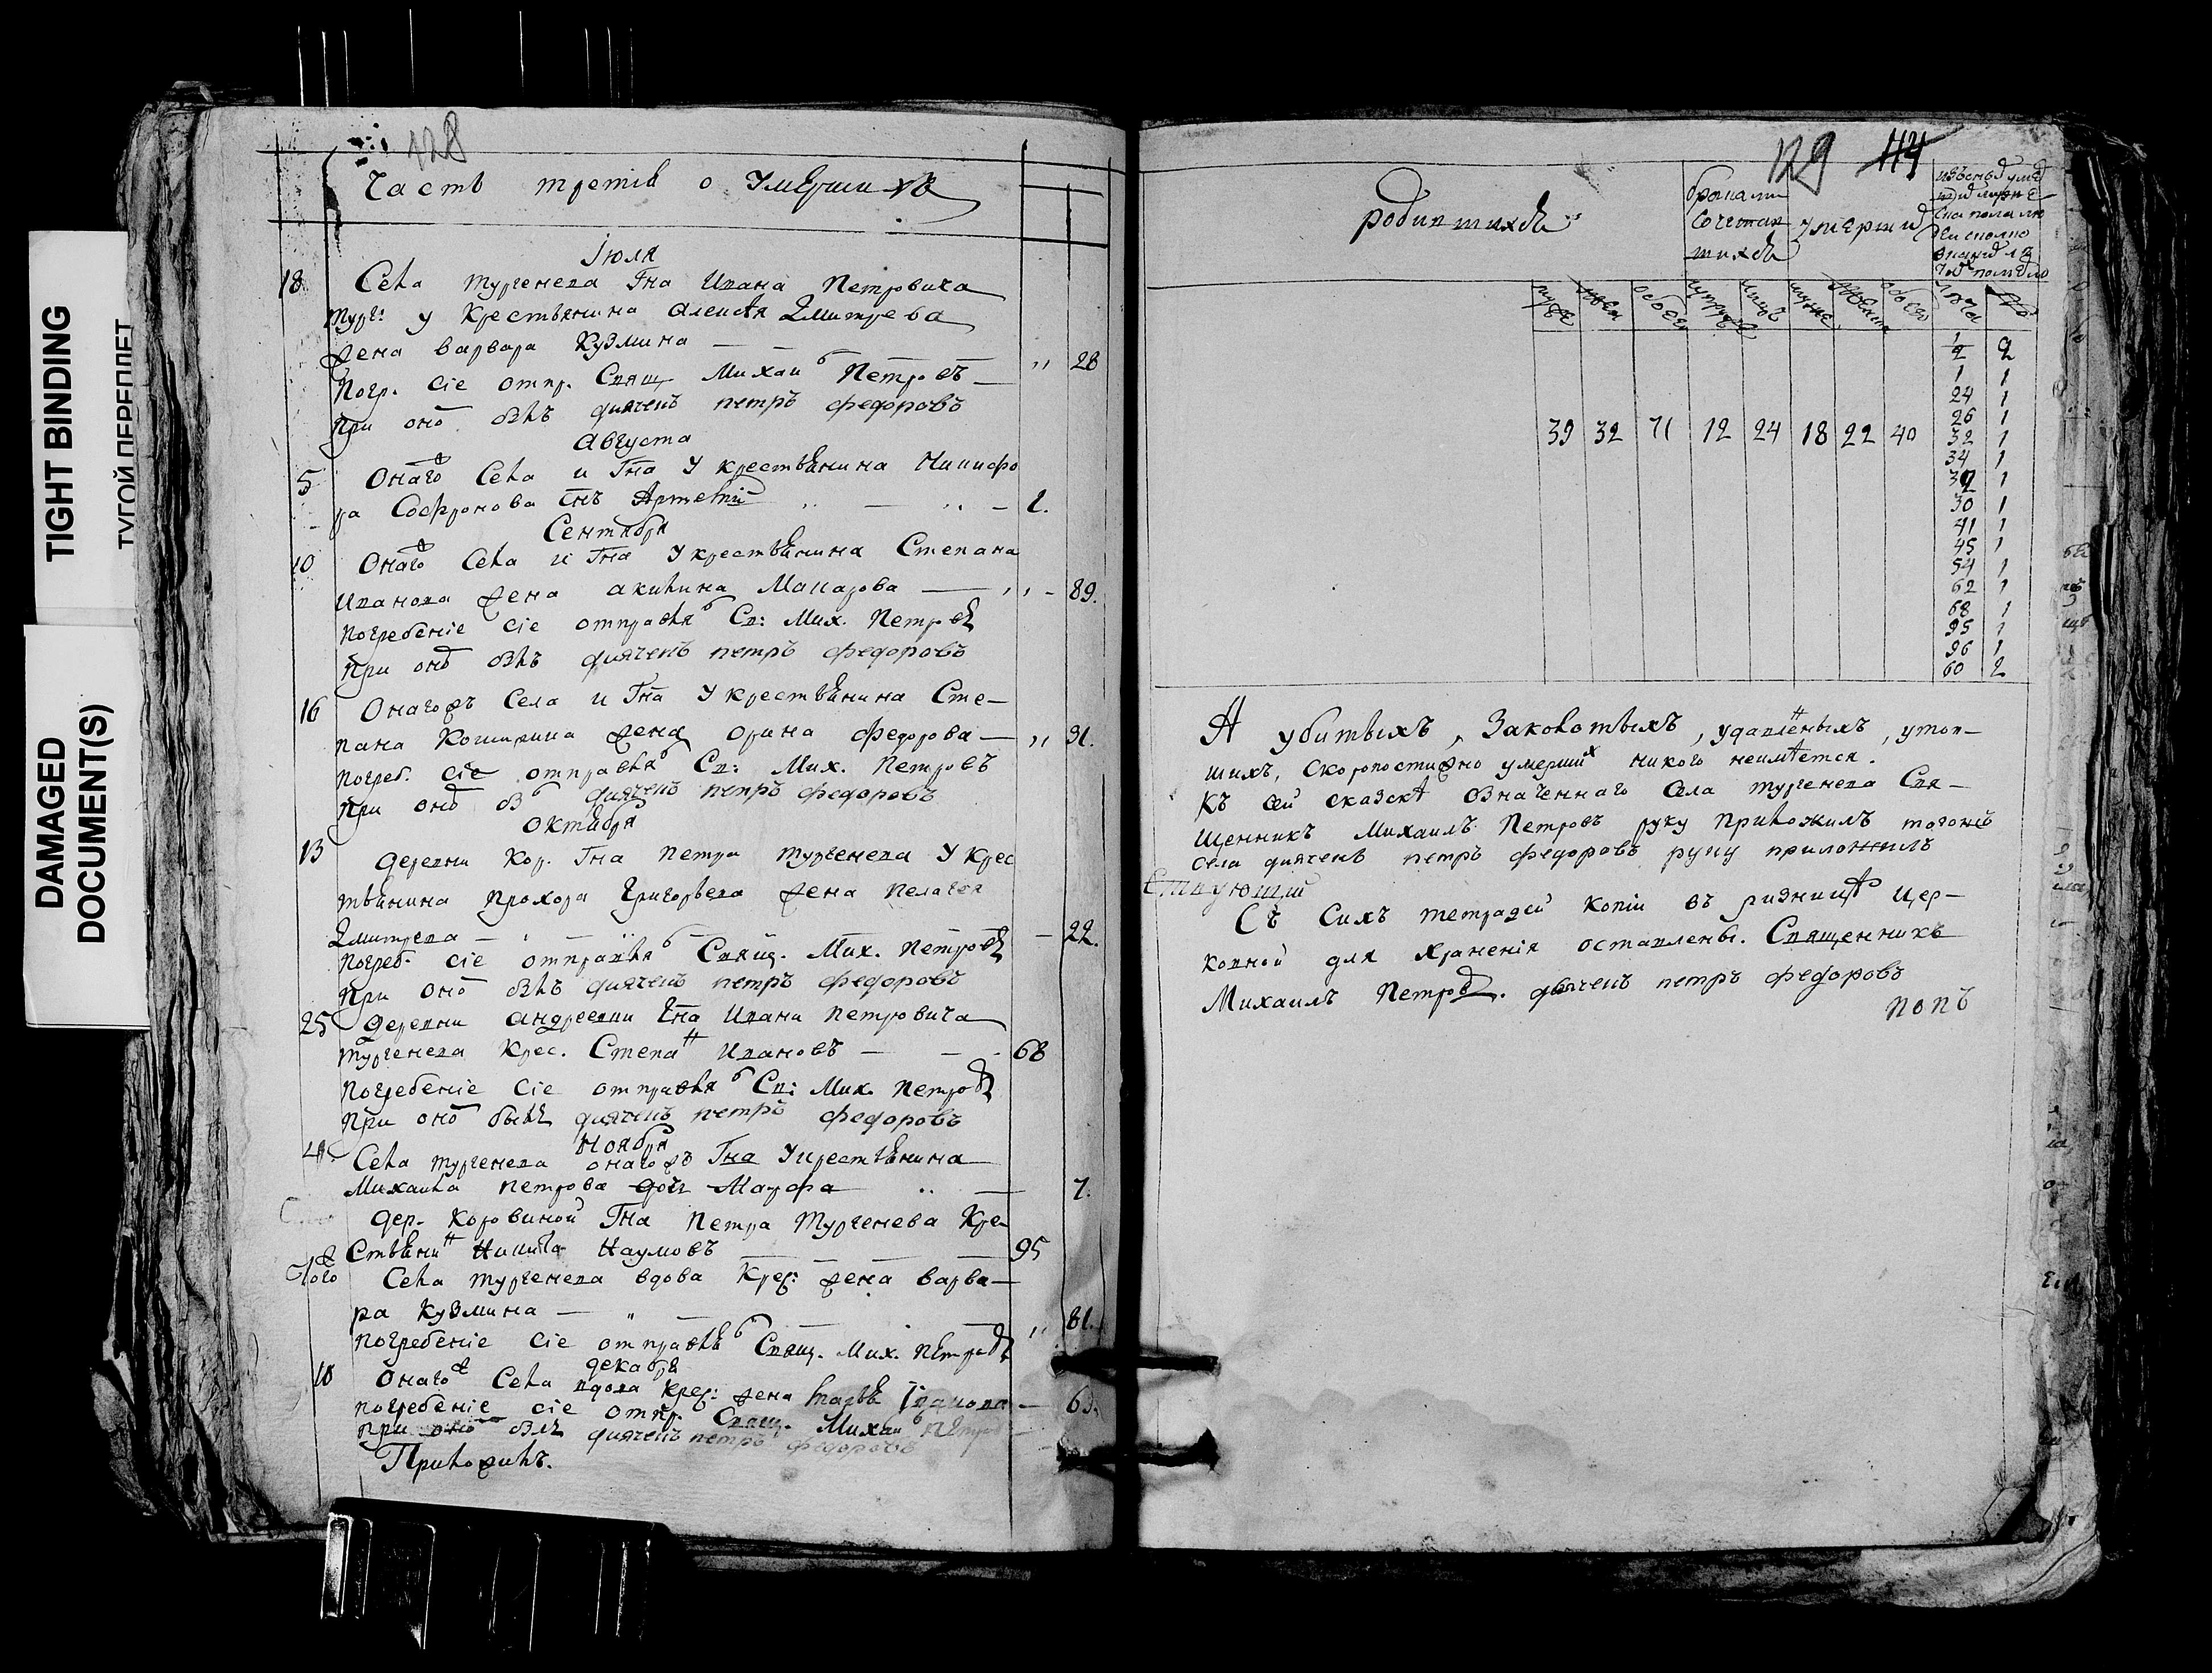 TIGHT BINDING
ТУГОЙ ПЕРЕПЛЕТ
DAMAGED
DOCUMENT(S)
128
Часть третія о Умерших
Іюля
18 Села тургенева Гна Ивана Петровича
тург: у Крестьянина алексѣя Дмитрева
жена варвара Кузмина — — „ 28
Погр. сіе отпр. Свящ. Михаи Петровъ
При оно былъ диячекъ петръ федоровъ
Августа
5 Онаго Села и Гна У крестьянина Никифо
ра Софронова снъ Артемій — — 1.
Сентября
10 Онаго Села и Гна У крестьянина Степана
Иванова жена акилина Макарова — 89.
погребеніе сіе отправля Св: Мих. Петровъ
При оно былъ диячекъ петръ федоровъ
16 Онагожъ Села и Гна У крестьянина Сте-
пана жена орина федорова — „ 91.
погреб. сіе отправля Св: Мих. Петровъ
При оно диячекъ петръ федоровъ
Октября
13 деревни Кор. Гна Петра тургенева У Крес
тьянина Прохора Григорьева жена пелагея
Дмитрева — — — 22.
погреб. сіе отправля Свящ. Мих. Петровъ
При оно былъ диячекъ петръ федоровъ
25 деревни андреевки Гна Ивана Петровича
тургенева Крес. Степан Ивановъ — 68
погребеніе сіе отправля Св: Мих. Петровъ
При оно былъ диячекъ петръ федоровъ
Ноября
4 Села тургенева онагожъ Гна У крестьянина
Михаила петрова дочь Марфа — 7.
дер. Коровиной Гна Петра Тургенева Кре-
стьянин Никита Наумовъ — 95
Села тургенева вдова Крес: жена варва-
ра Кузмина — „ — „ 81.
погребеніе сіе отправля Свящ. Мих. Петровъ
декабря
10 онаго Села вдова крес: жена — 63.
погребеніе сіе отпр. Свящ. Михаи Петров
при оно былъ диячекъ петръ федоровъ
Приложилъ.
129 114
родившихся
бракали
сочетав
шихся
умерши
муже жен обоего супруж лицъ муже женска обоего лѣта
1/2 2
1 1
24 1
26 1
39 32 71 12 24 18 22 40 32 1
34 1
1
30 1
41 1
45 1
54 1
62 1
68 1
95 1
96 1
60 2
А убитыхъ, Заколотыхъ, удавленыхъ, утоп-
шихъ, Скоропостижно умерших никого неимѣется.
Къ сей сказкѣ означеннаго Села тургенева Свя-
щенникъ Михаилъ Петровъ руку Приложилъ тогожъ
села диячекъ петръ федоровъ руку приложилъ
Съ Сихъ тетрадей копіи въ ризницѣ Цер-
ковной для храненія оставлены. Священникъ
Михаилъ Петровъ. дьячекъ петръ федоровъ
попъ